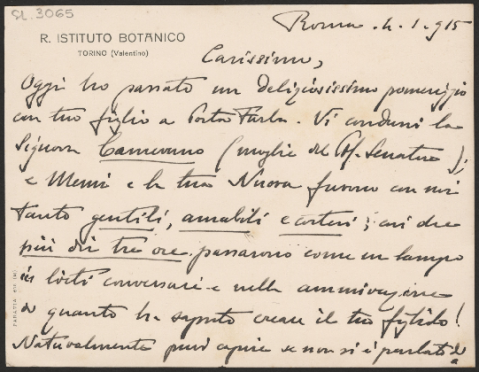 GL. 3065
R. ISTITUTO BOTANICO
TORINO (Valentino)
Roma. 4. 1. 915
Carissimo,
Oggi ho passato un deliziosissimo pomeriggio
con tuo figlio a Porta Furba. Vi condussi la
Signora Camerano (moglie del Pf. Senatore);
e Memi e la tua Nuora furono con noi
tanto gentili, amabili e cortesi; così che
più di tre ore passarono come un lampo
in lieti conversari e nella ammirazione
di quanto ha saputo creare il tuo figliolo!
Naturalmente puoi capire se non si è parlato di